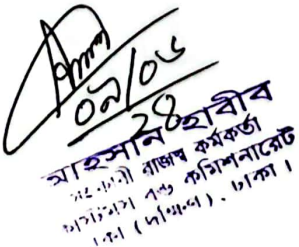 ০৯/০৬
২৪
আহসান হাবীব
সহকারী রাজস্ব কর্মকর্তা
কাস্টমস বন্ড কমিশনারেট
ঢাকা (দক্ষিণ), ঢাকা।